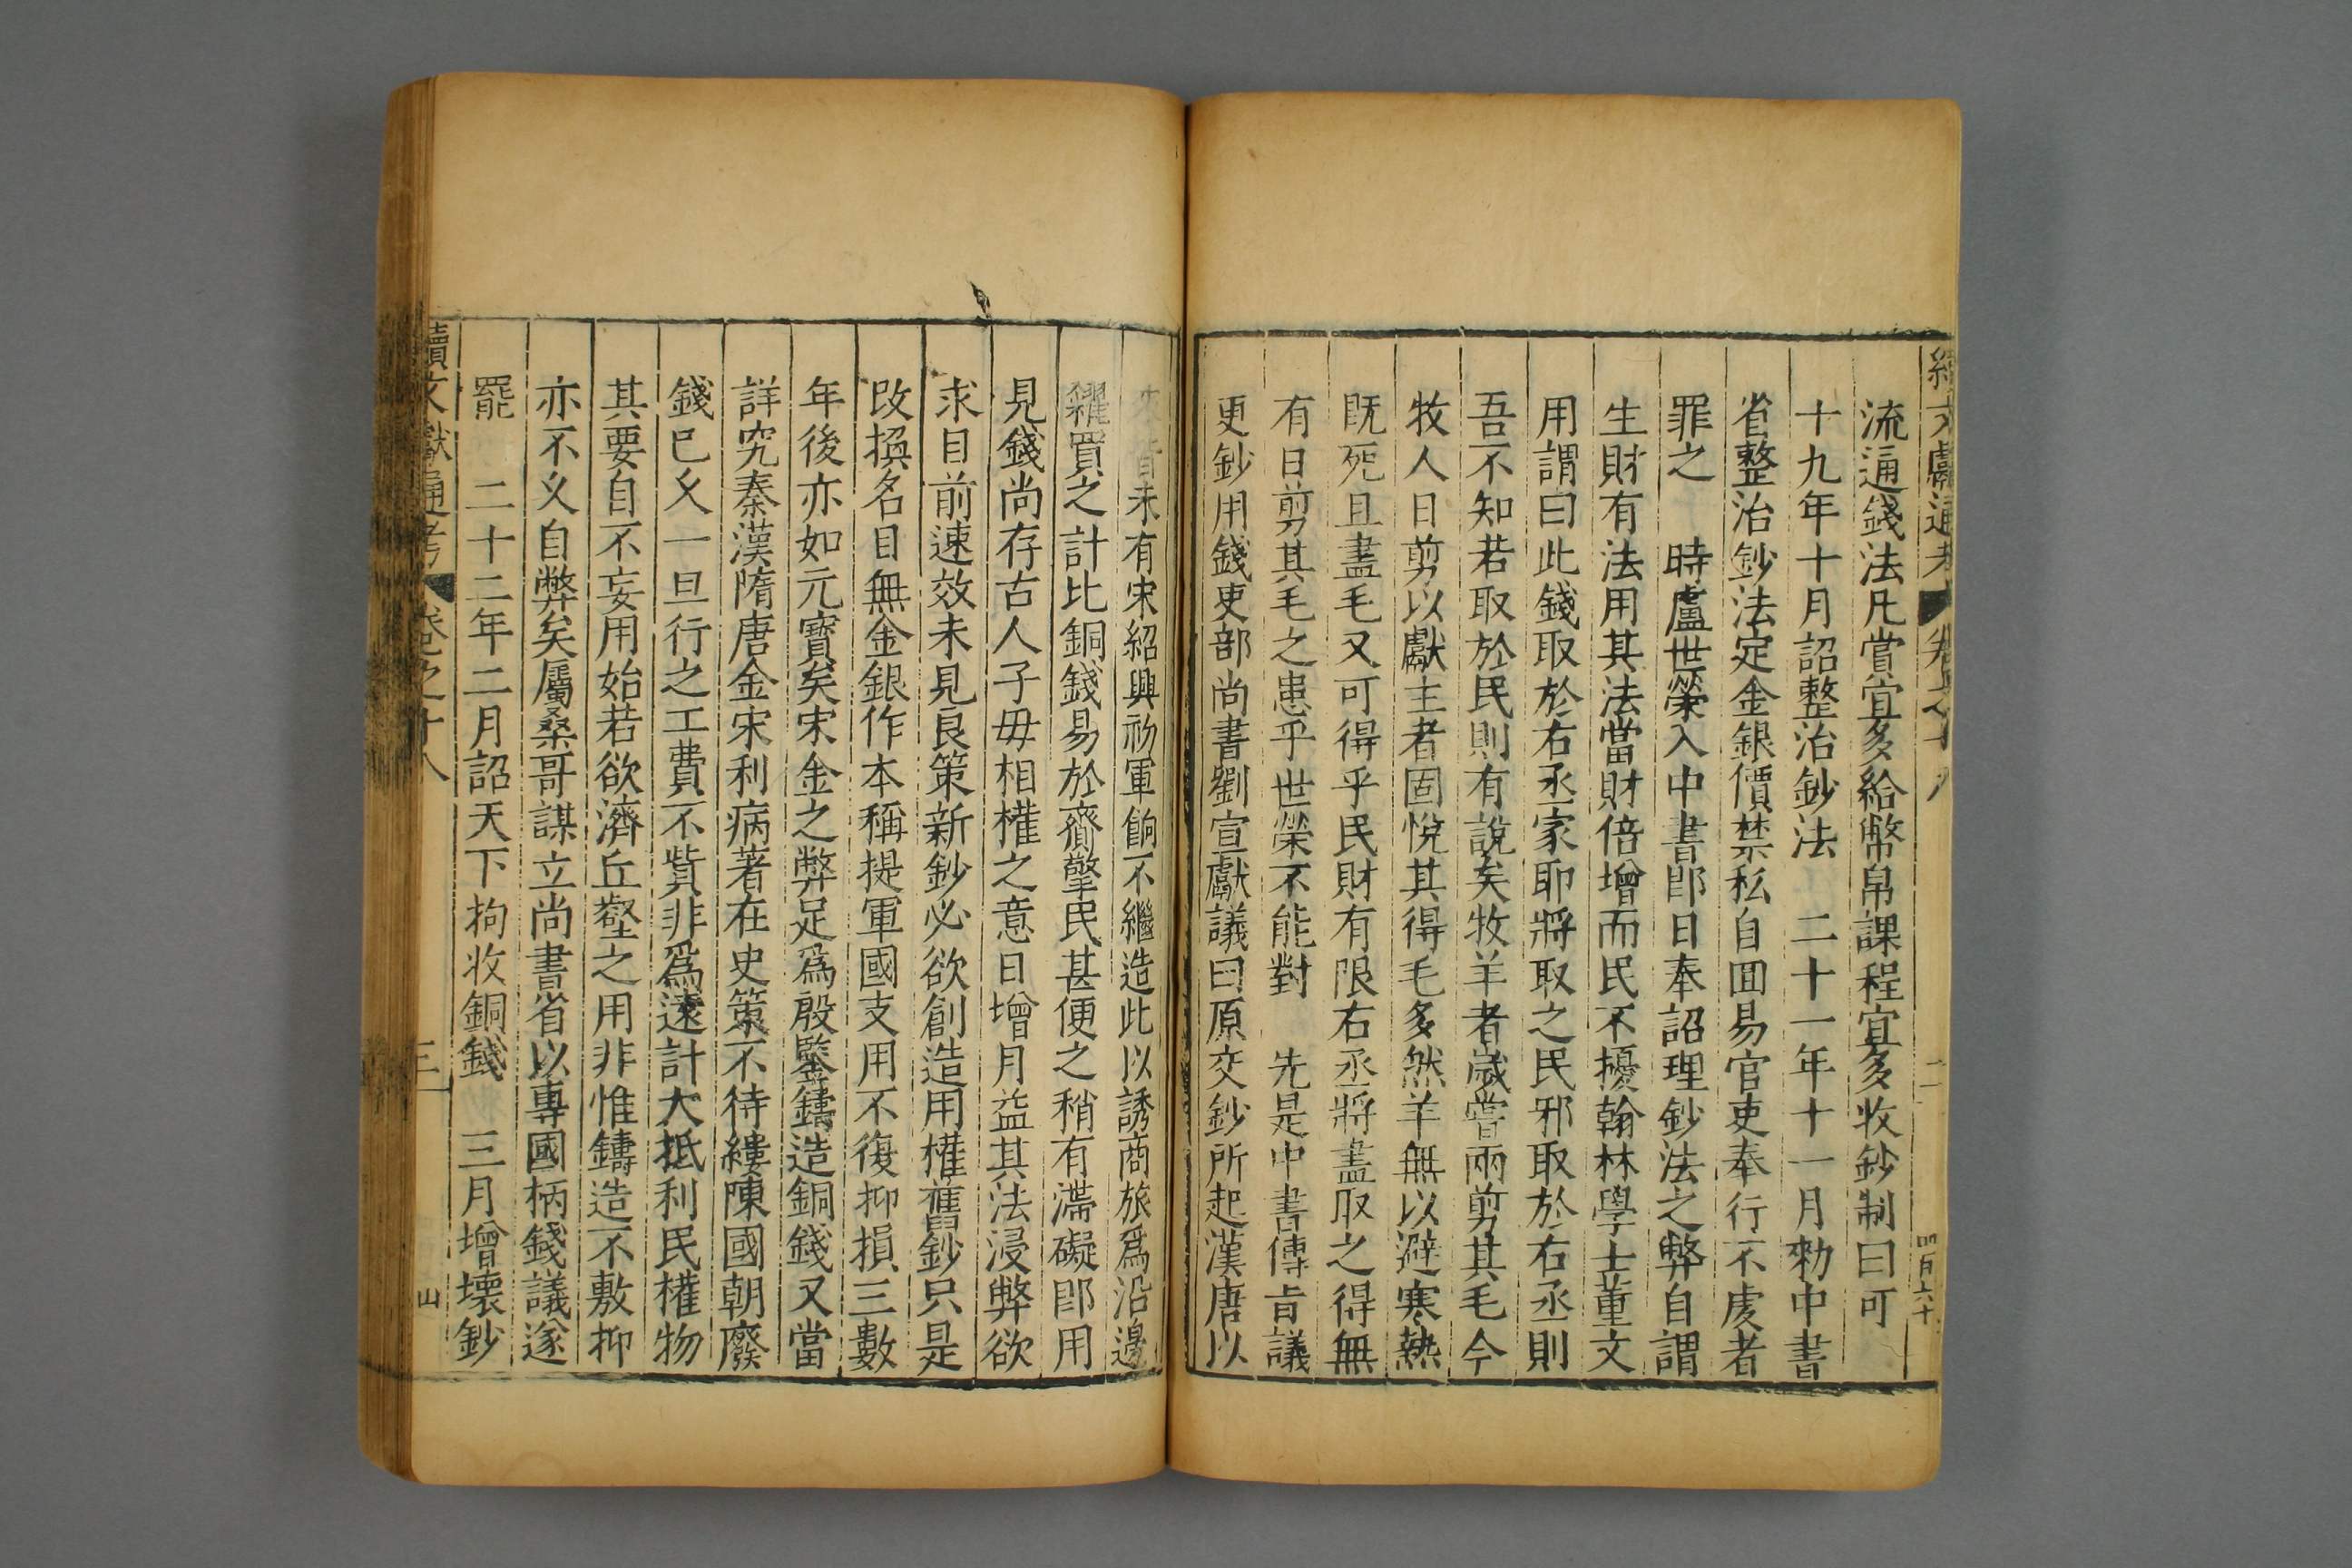 續文獻通考 卷之十八 二 四百六十
流通錢法凡賞宜多給幣帛課程宜多收鈔制曰可
十九年十月詔整治鈔法 二十一年十一月勑中書
省整治鈔法定金銀價禁私自囬易官吏奉行不虔者
罪之 時盧世榮入中書即日奉詔理鈔法之弊自謂
生財有法用其法當財倍增而民不擾翰林學士董文
用謂曰此錢取於右丞家耶將取之民邪取於右丞則
吾不知若取於民則有說矣牧羊者歲嘗兩剪其毛今
牧人日剪以獻主者固悅其得毛多然羊無以避寒熱
既死且盡毛又可得乎民財有限右丞將盡取之得無
有日剪其毛之患乎世榮不能對 先是中書傳旨議
更鈔用錢吏部尚書劉宣獻議曰原交鈔所起漢唐以
來皆未有宋紹興初軍餉不繼造此以誘商旅爲沿邊
糴買之計比銅錢易於齎擎民甚便之稍有滯礙即用
見錢尚存古人子毋相權之意日增月益其法浸弊欲
求目前速效未見良策新鈔必欲創造用權舊鈔只是
改換名目無金銀作本稱提軍國支用不復抑損三數
年後亦如元寳矣宋金之弊足爲殷鑒鑄造銅錢又當
詳究秦漢隋唐金宋利病著在史策不待縷陳國朝廢
錢已久一旦行之工費不貲非爲遠計大抵利民權物
其要自不妄用始若欲濟丘壑之用非惟鑄造不敷抑
亦不久自弊矣屬桑哥謀立尚書省以專國柄錢議遂
罷 二十二年二月詔天下拘收銅錢 三月增壞鈔
續文獻通考 卷之十八 三 山